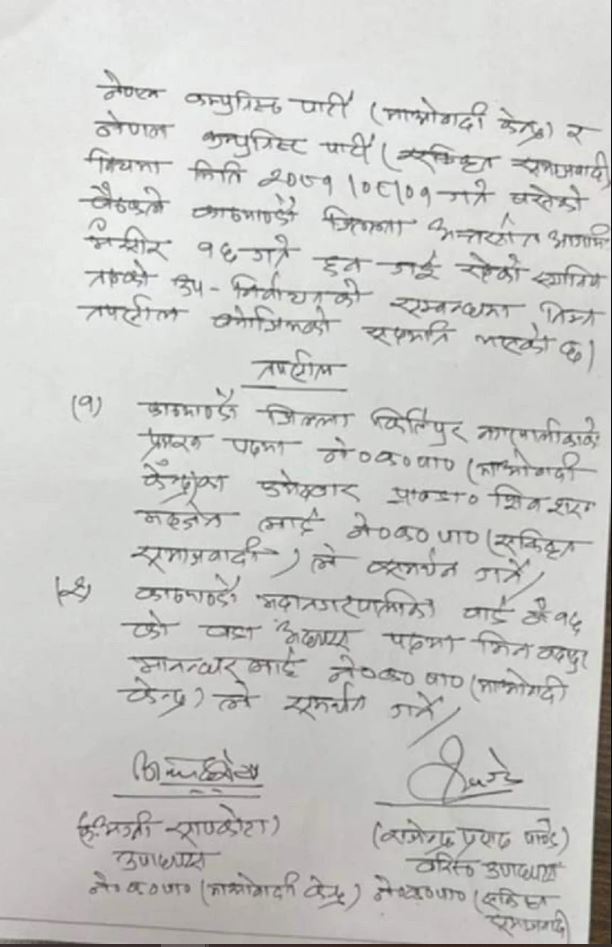 नेपाल कम्युनिस्ट पार्टी (माओवादी केन्द्र) र
नेपाल कम्युनिस्ट पार्टी (एकिकृत समाजवादी)
बिचमा मिति २०८१।०८।०१ गते बसेको
बैठकले काठमाण्डौ जिल्ला अन्तर्गत आगामि
मंसीर १६ गते हुन गई रहेको स्थानिय
तहको उप-निर्वाचनको सम्बन्धमा निम्न
तपसील बमोजिमको सहमति भएको छ।
तपसील
(१) काठमाण्डौ जिल्ला किर्तिपुर नगरपालीकाको
प्रमुख पदमा ने०क०पा० (माओवादी
केन्द्र)का उम्मेदवार प्रा०डा० शिव शरण
महर्जन लाई ने०क०पा० (एकिकृत
समाजवादी) ले समर्थन गर्ने/
(२) काठमाण्डौ महानगरपालिका वार्ड नं १६
को वडा अध्यक्ष पदमा भिम बहादुर
मानन्धर लाई ने०क०पा० (माओवादी
केन्द्र) ले समर्थन गर्ने/
सापकोटा)
(राजेन्द्र प्रसाद पाण्डे)
उपाध्यक्ष
वरिष्ठ उपाध्यक्ष
ने०क०पा० (माओवादी केन्द्र)
ने०क०पा० (एकिकृत
समाजवादी)